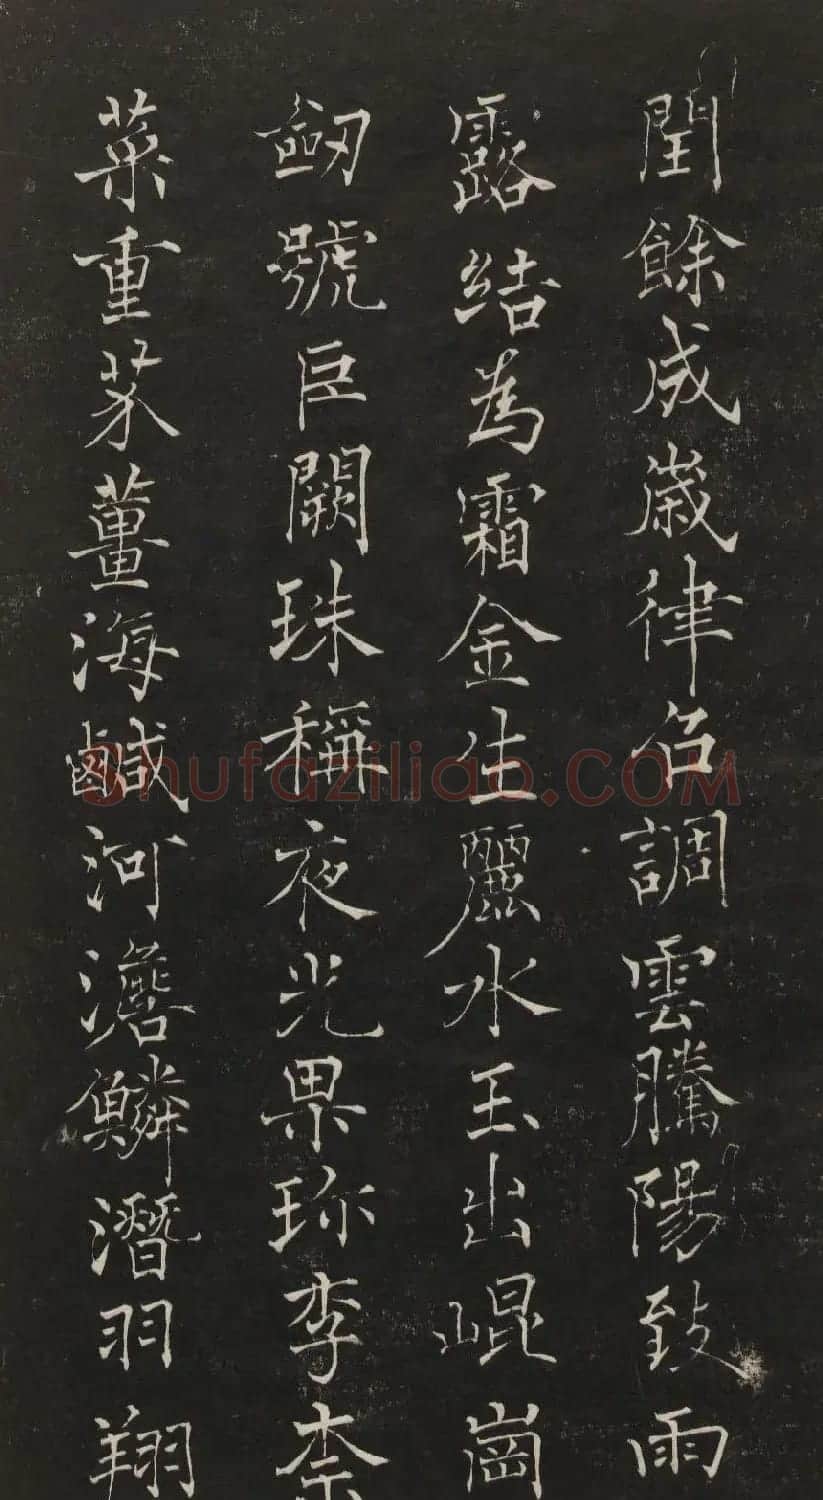 閏餘成歲律召調雲騰陽致雨
露結為霜金生麗水玉出崐崗
劒號巨闕珠稱夜光果珎李柰
菜重芥薑海鹹河澹鱗潛羽翔
Shufaziliao.COM